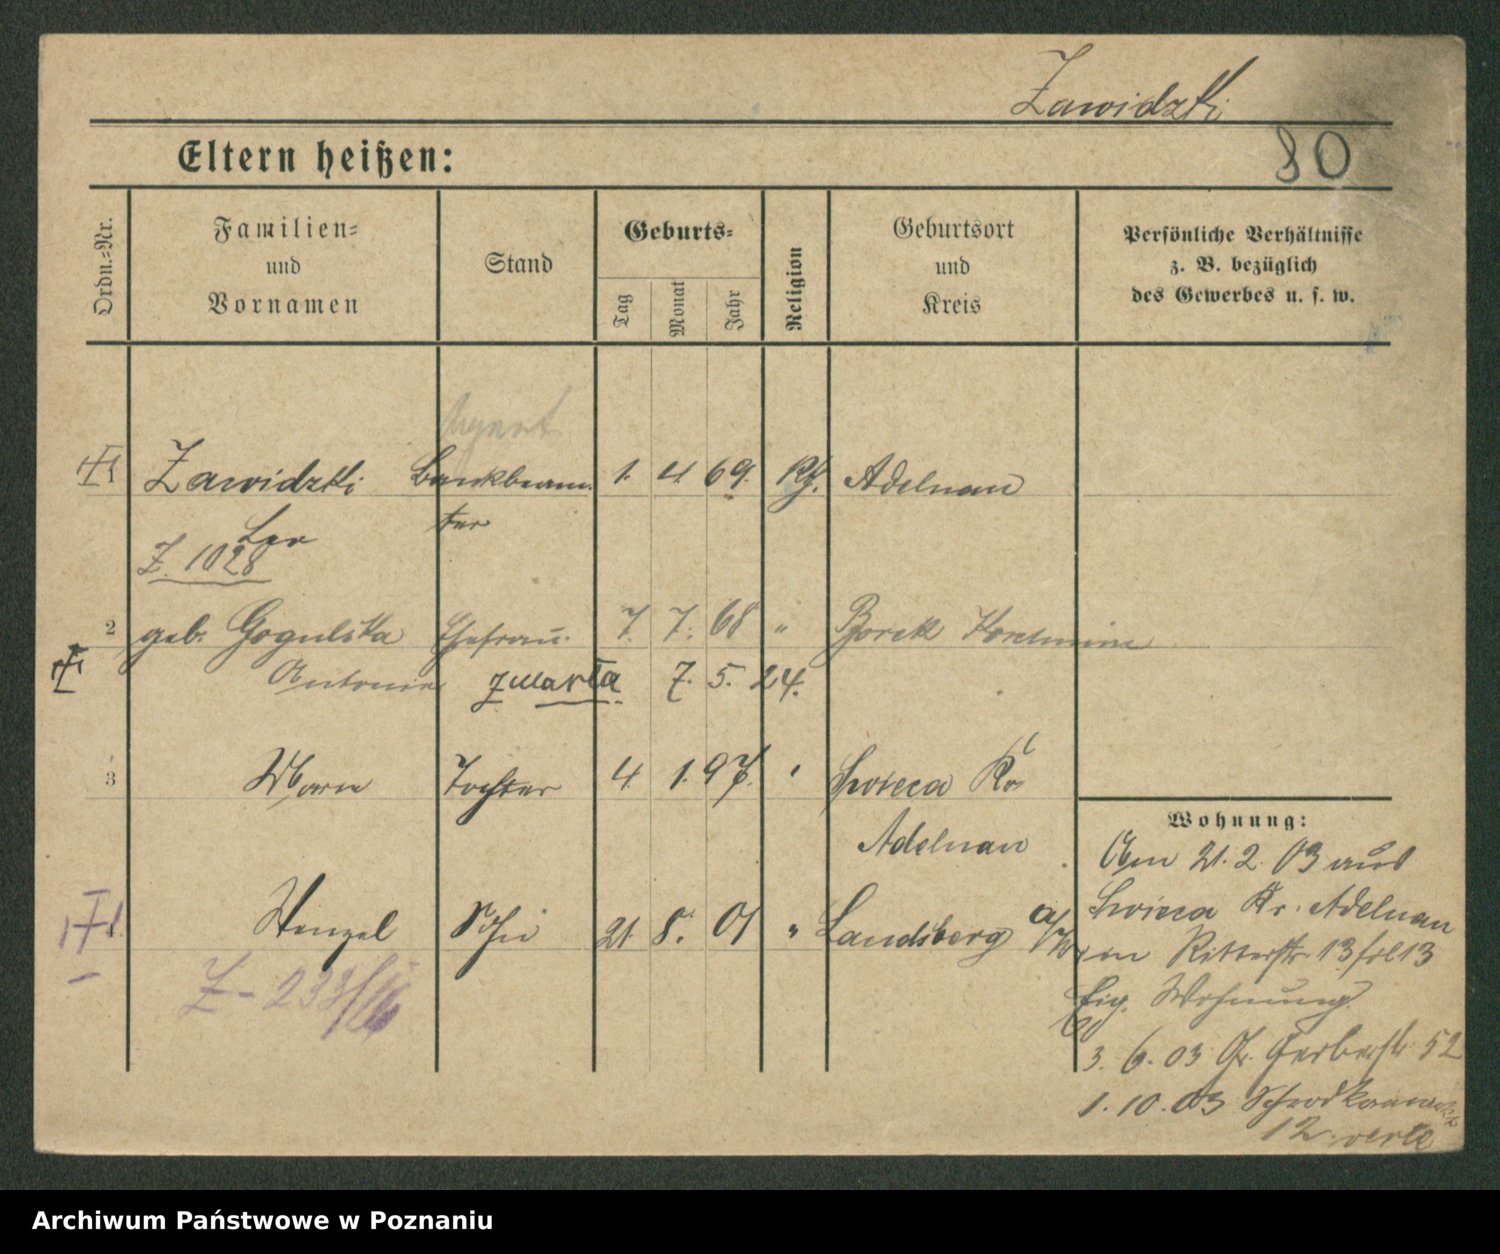 Zawidzki
80
Eltern heißen:
Ordn.=Nr.
Familien=
und
Vornamen
Stand
Geburts=
Tag
Monat
Jahr
Religion
Geburtsort
und
Kreis
Persönliche Verhältnisse
z. B. bezüglich
des Gewerbes u. s. w.
Agent
Zawidzki Bankbeam- 1. 4 69. Kf. Adelnau
ter
Leo
Z. 1028
2 geb. Gogulska Ehefrau 7. 7. 68 " Borek Koschmin
Antonie zmarła 7. 5. 24.
3 Marie Tochter 4. 1. 97. " Kr.
Adelnau
Wohnung:
Am 21. 2. 03 aus
Kr. Adelnau
4 Wenzel Sohn 21. 8. 01 " Landsberg a/W
Ritterstr. 13
Eig. Wohnung
Z - 233/
3. 6. 03 Gr. Gerberstr 52
1. 10. 03 Schrodkamarkt
12. verte
Archiwum Państwowe w Poznaniu